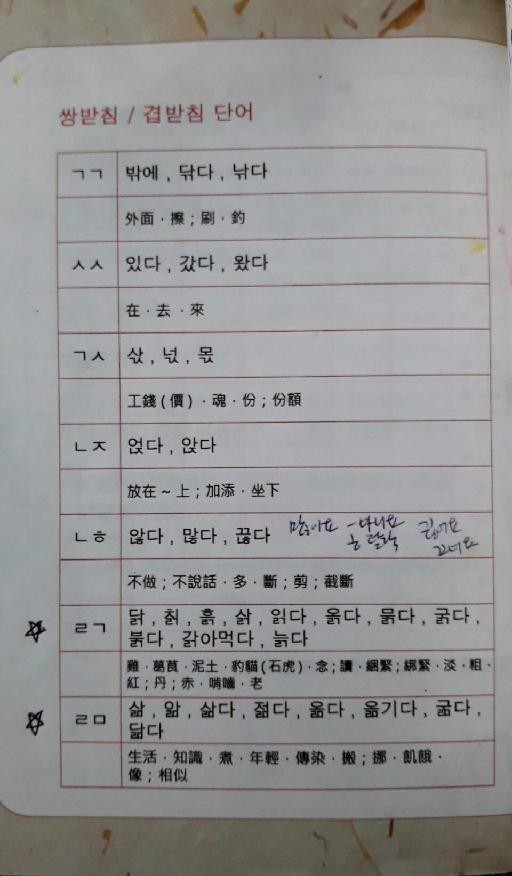 쌍받침 / 겹받침 단어
ㄱㄱ 밖에 , 닦다 , 낚다
外面 · 擦 ; 刷 · 釣
ㅅㅅ 있다 , 갔다 , 왔다
在 · 去 · 來
ㄱㅅ 삯 , 넋 , 몫
工錢 ( 價 ) · 魂 · 份 ; 份額
ㄴㅈ 얹다 , 앉다
放在 ~ 上 ; 加添 · 坐下
ㄴㅎ 않다 , 많다 , 끊다 많아요 - 마나요 끊어요
ㅎ 탈락 끄너요
不做 ; 不說話 · 多 · 斷 ; 剪 ; 截斷
ㄹㄱ 닭 , 칡 , 흙 , 삵 , 읽다 , 옭다 , 묽다 , 굵다 ,
붉다 , 갉아먹다 , 늙다
雞 · 葛茛 · 泥土 · 豹貓 (石虎) · 念 ; 讀 · 綑緊 ; 綁緊 · 淡 · 粗 ·
紅 ; 丹 ; 赤 · 啃嚙 · 老
ㄹㅁ 삶 , 앎 , 삶다 , 젊다 , 옮다 , 옮기다 , 굶다 ,
닮다
生活 · 知識 · 煮 · 年輕 · 傳染 · 搬 ; 挪 · 飢餓 ·
像 ; 相似